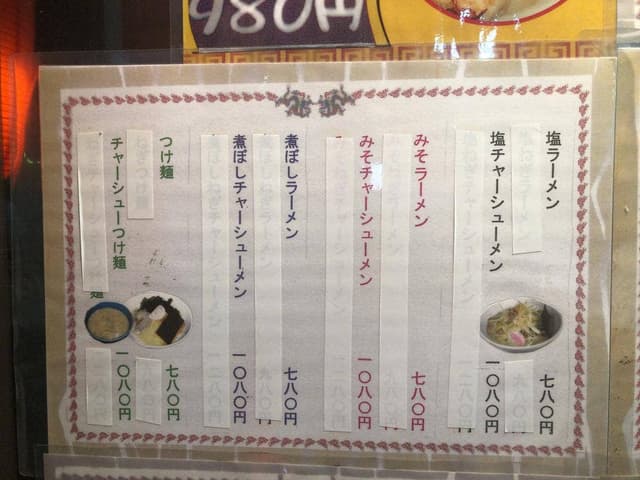 980円
塩ラーメン 七八〇円
塩チャーシューメン 一〇八〇円
みそラーメン 七八〇円
みそチャーシューメン 一〇八〇円
煮ぼしラーメン 七八〇円
煮ぼしチャーシューメン 一〇八〇円
つけ麺 七八〇円
チャーシューつけ麺 一〇八〇円
麺